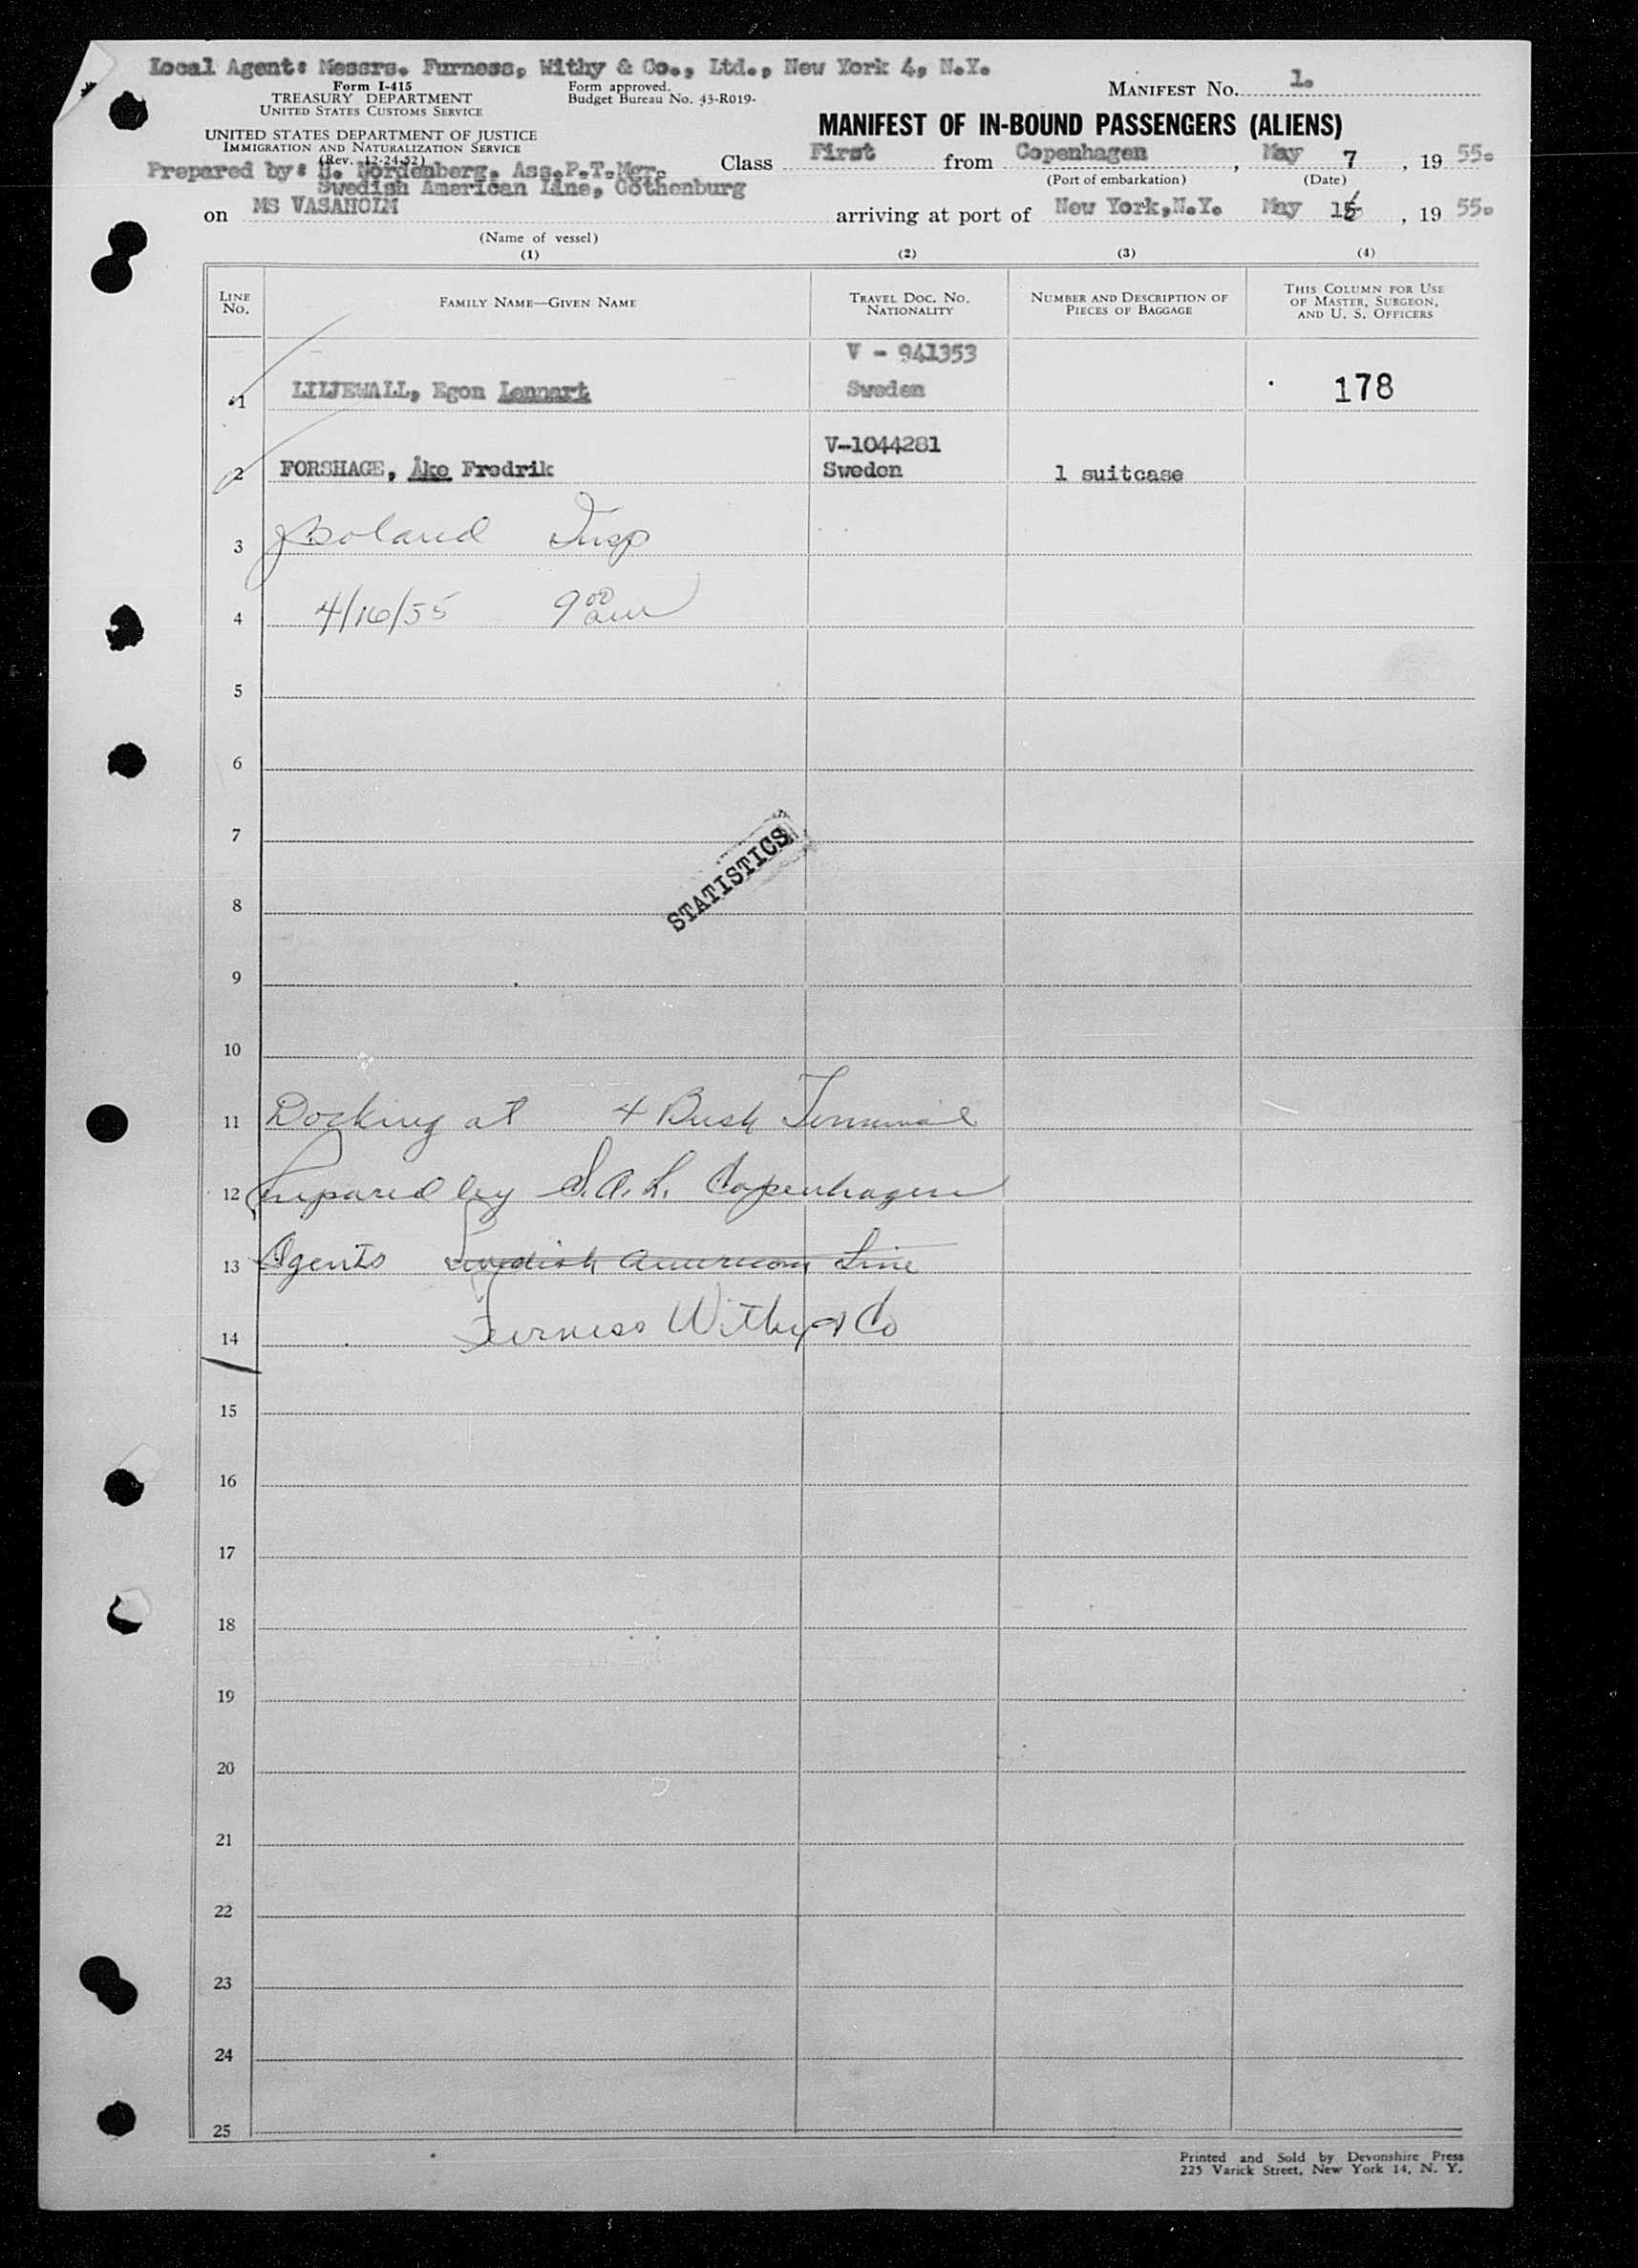 Local Agent: Messrs. Furness, Withy & Co., Ltd., New York 4, N.Y.
Form I-415
TREASURY DEPARTMENT
UNITED STATES CUSTOMS SERVICE
Form approved.
Budget Bureau No. 43-R019-
MANIFEST NO. 1.
UNITED STATES DEPARTMENT OF JUSTICE
IMMIGRATION AND NATURALIZATION SERVICE
(Rev. 12-24-52)
MANIFEST OF IN-BOUND PASSENGERS (ALIENS)
Prepared by: H. Nordenberg. Ass.P.T.Mgr.
Swedish American Line, Gothenburg
Class First from Copenhagen, May 7, 1955.
(Port of embarkation) (Date)
on MS VASAHOLM arriving at port of New York, N.Y. May 16, 1955.
(Name of vessel)
(1) (2) (3) (4)
LINE NO.
FAMILY NAME—GIVEN NAME
TRAVEL DOC. NO. NATIONALITY
NUMBER AND DESCRIPTION OF PIECES OF BAGGAGE
THIS COLUMN FOR USE OF MASTER, SURGEON, AND U. S. OFFICERS
V - 941353
1 LILJEWALL, Egon Lennart Sweden 178
V-1044281
2 FORSHAGE, Åke Fredrik Sweden 1 suitcase
3 Boland Insp
4 4/16/55 9 00 am
5
6
7
STATISTICS
8
9
10
11 Docking at 4 Bush Terminal
12 Prepared by S.A.L. Copenhagen
13 Agents Swedish American Line
14 Furness Withy & Co
15
16
17
18
19
20
21
22
23
24
25
Printed and Sold by Devonshire Press
225 Varick Street, New York 14, N. Y.